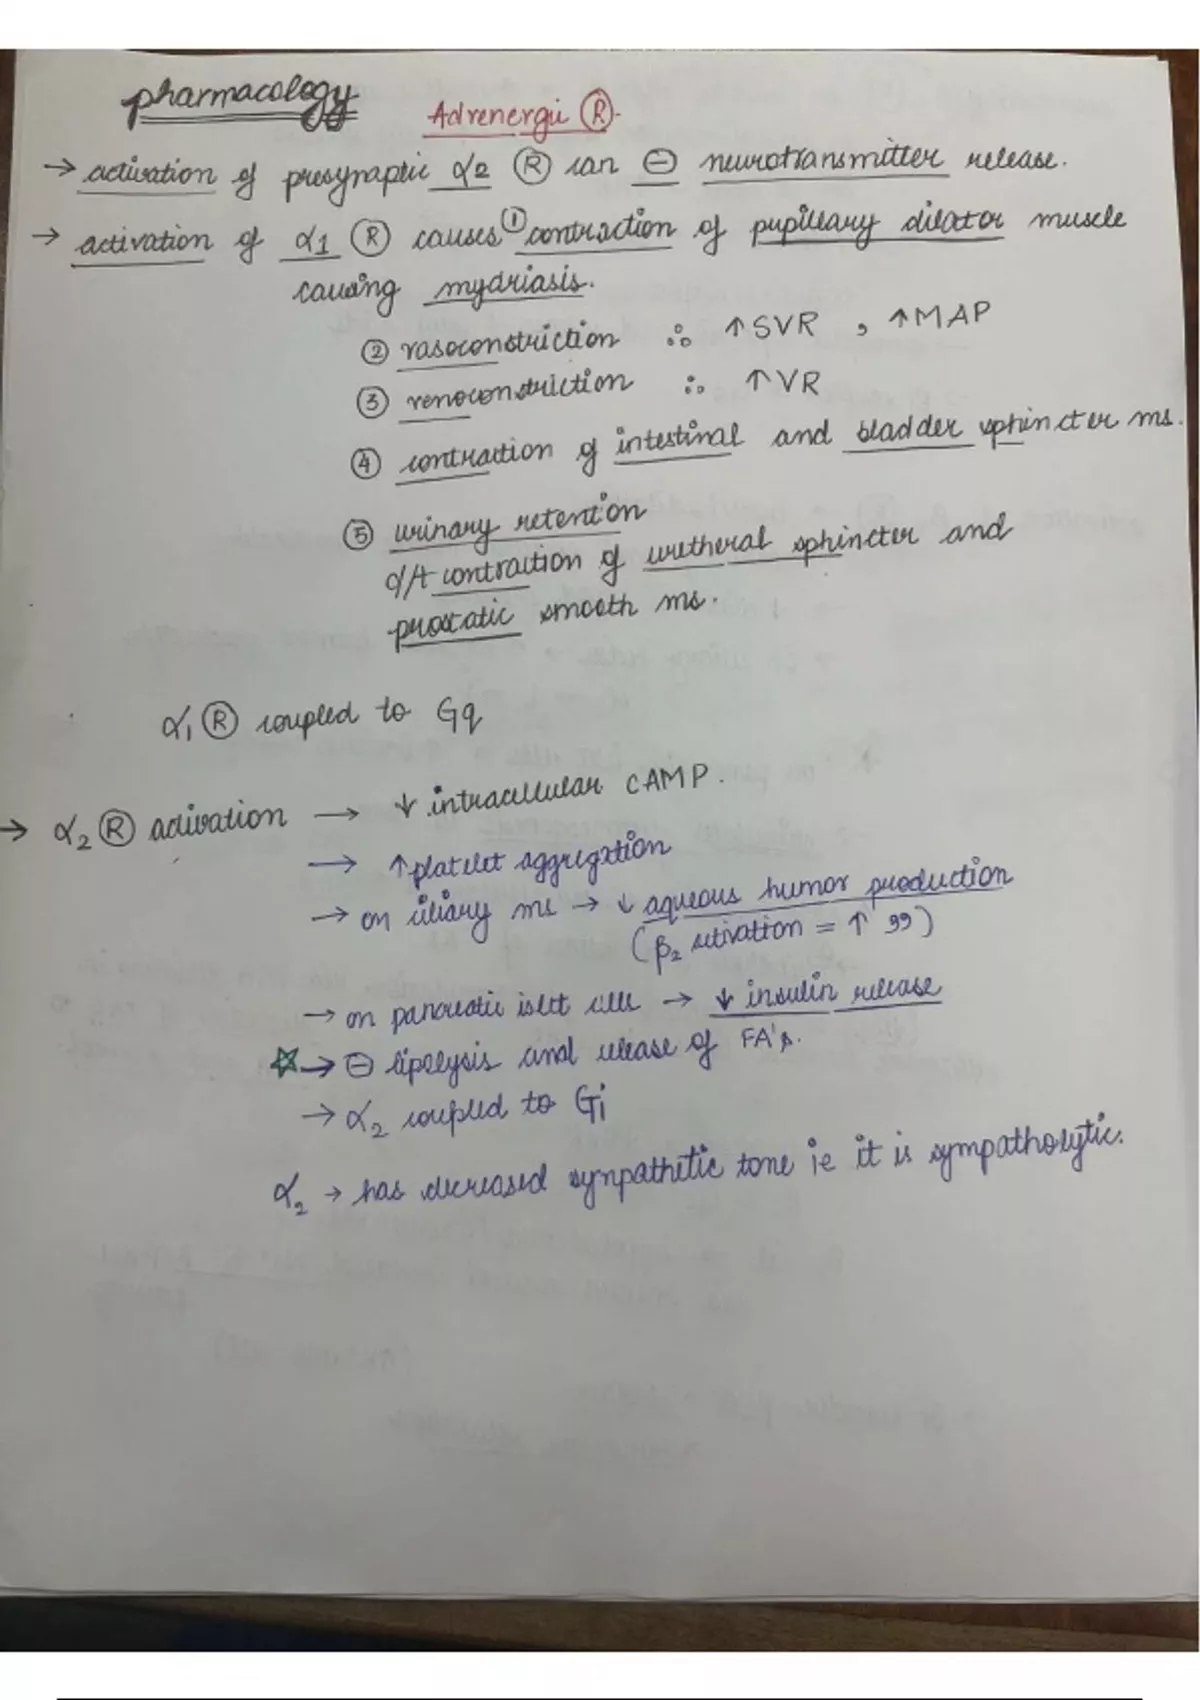 pharmacology
Adrenergic Ⓡ.
→ activation of presynaptic α2 Ⓡ can ⊖ neurotransmitter release.
→ activation of α1 Ⓡ causes ① contraction of pupillary dilator muscle
causing mydriasis.
② vasoconstriction ∴ ↑SVR , ↑MAP
③ venoconstriction ∴ ↑VR
④ contraction of intestinal and bladder sphincter ms.
⑤ urinary retention
d/t contraction of uretheral sphincter and
prostatic smooth ms.
α₁ Ⓡ coupled to Gq
→ α₂ Ⓡ activation → ↓ intracellular cAMP.
→ ↑platelet aggregation
→ on ciliary ms → ↓ aqueous humor production
(β₂ activation = ↑ 99)
→ on pancreatic islet cells → ↓ insulin release
☆→ ⊖ lipolysis and release of FA's.
→ α₂ coupled to Gi
α₂ → has decreased sympathetic tone ie it is sympatholytic.